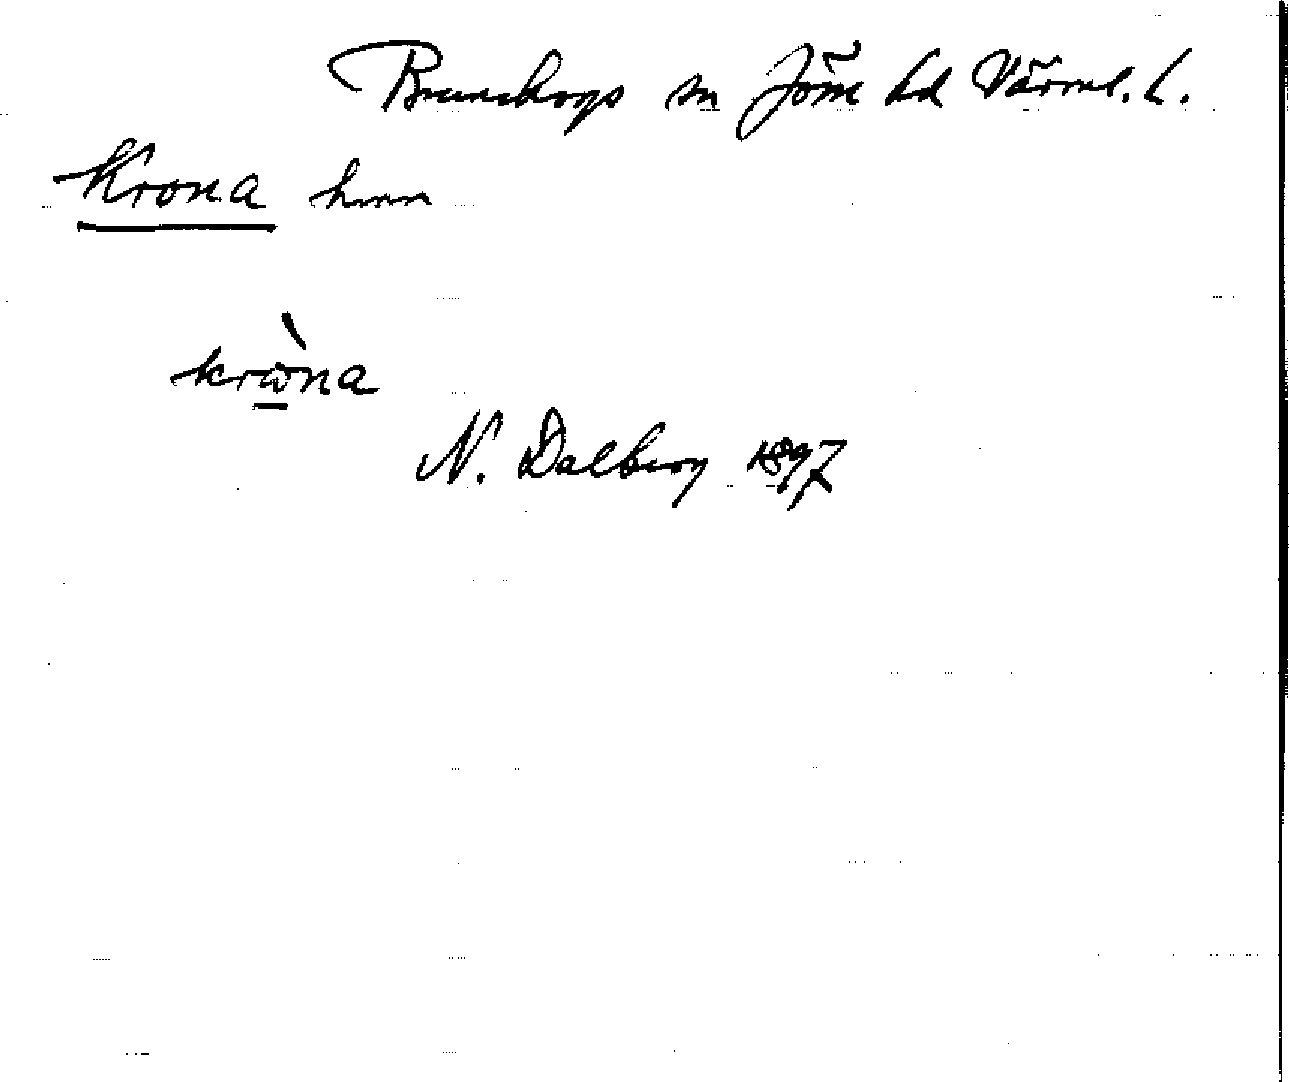 Brunskogs sn Jösse hd Värml. L.
Krona hmn
kròna
N. Dalberg 1897